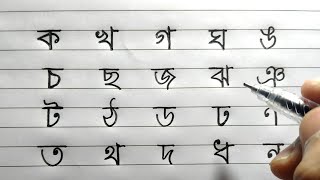 ক খ গ ঘ ঙ
চ ছ জ ঝ ঞ
ট ঠ ড ঢ ণ
ত থ দ ধ ন